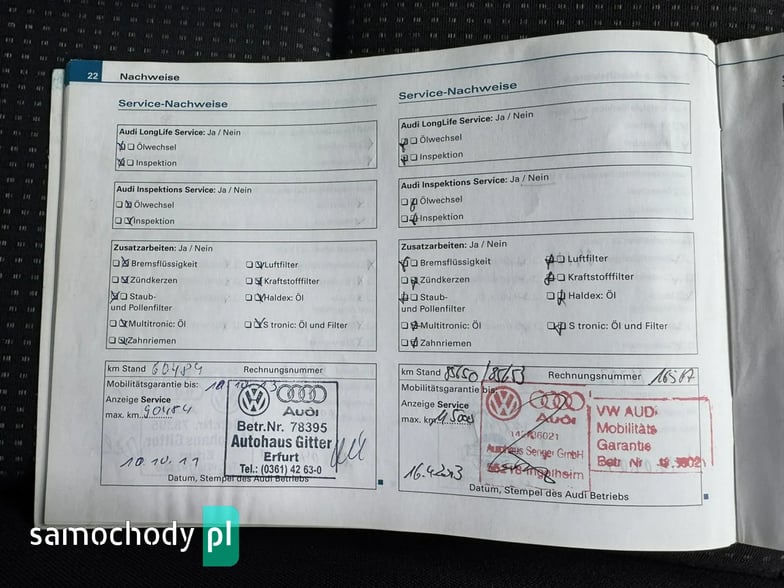 22 Nachweise
Service-Nachweise
Audi LongLife Service: Ja / Nein
Ölwechsel
Inspektion
Audi Inspektions Service: Ja / Nein
Ölwechsel
Inspektion
Zusatzarbeiten: Ja / Nein
Bremsflüssigkeit
Luftfilter
Zündkerzen
Kraftstofffilter
Staub-
und Pollenfilter
Haldex: Öl
Multitronic: Öl
S tronic: Öl und Filter
Zahnriemen
km Stand 60484 Rechnungsnummer
Mobilitätsgarantie bis:
Anzeige Service
max. km 90484
Audi
Betr.Nr. 78395
Autohaus Gitter
Erfurt
Tel.: (0361) 42 63-0
10.10.11
Datum, Stempel des Audi Betriebs
Service-Nachweise
Audi LongLife Service: Ja / Nein
Ölwechsel
Inspektion
Audi Inspektions Service: Ja / Nein
Ölwechsel
Inspektion
Zusatzarbeiten: Ja / Nein
Bremsflüssigkeit
Luftfilter
Zündkerzen
Kraftstofffilter
Staub-
und Pollenfilter
Haldex: Öl
Multitronic: Öl
S tronic: Öl und Filter
Zahnriemen
km Stand Rechnungsnummer
Mobilitätsgarantie bis
Anzeige Service
max. km
Audi
Autohaus Senger GmbH
Ingelheim
VW AUDI
Mobilitäts
Garantie
Betr Nr
Datum, Stempel des Audi Betriebs
samochody pl